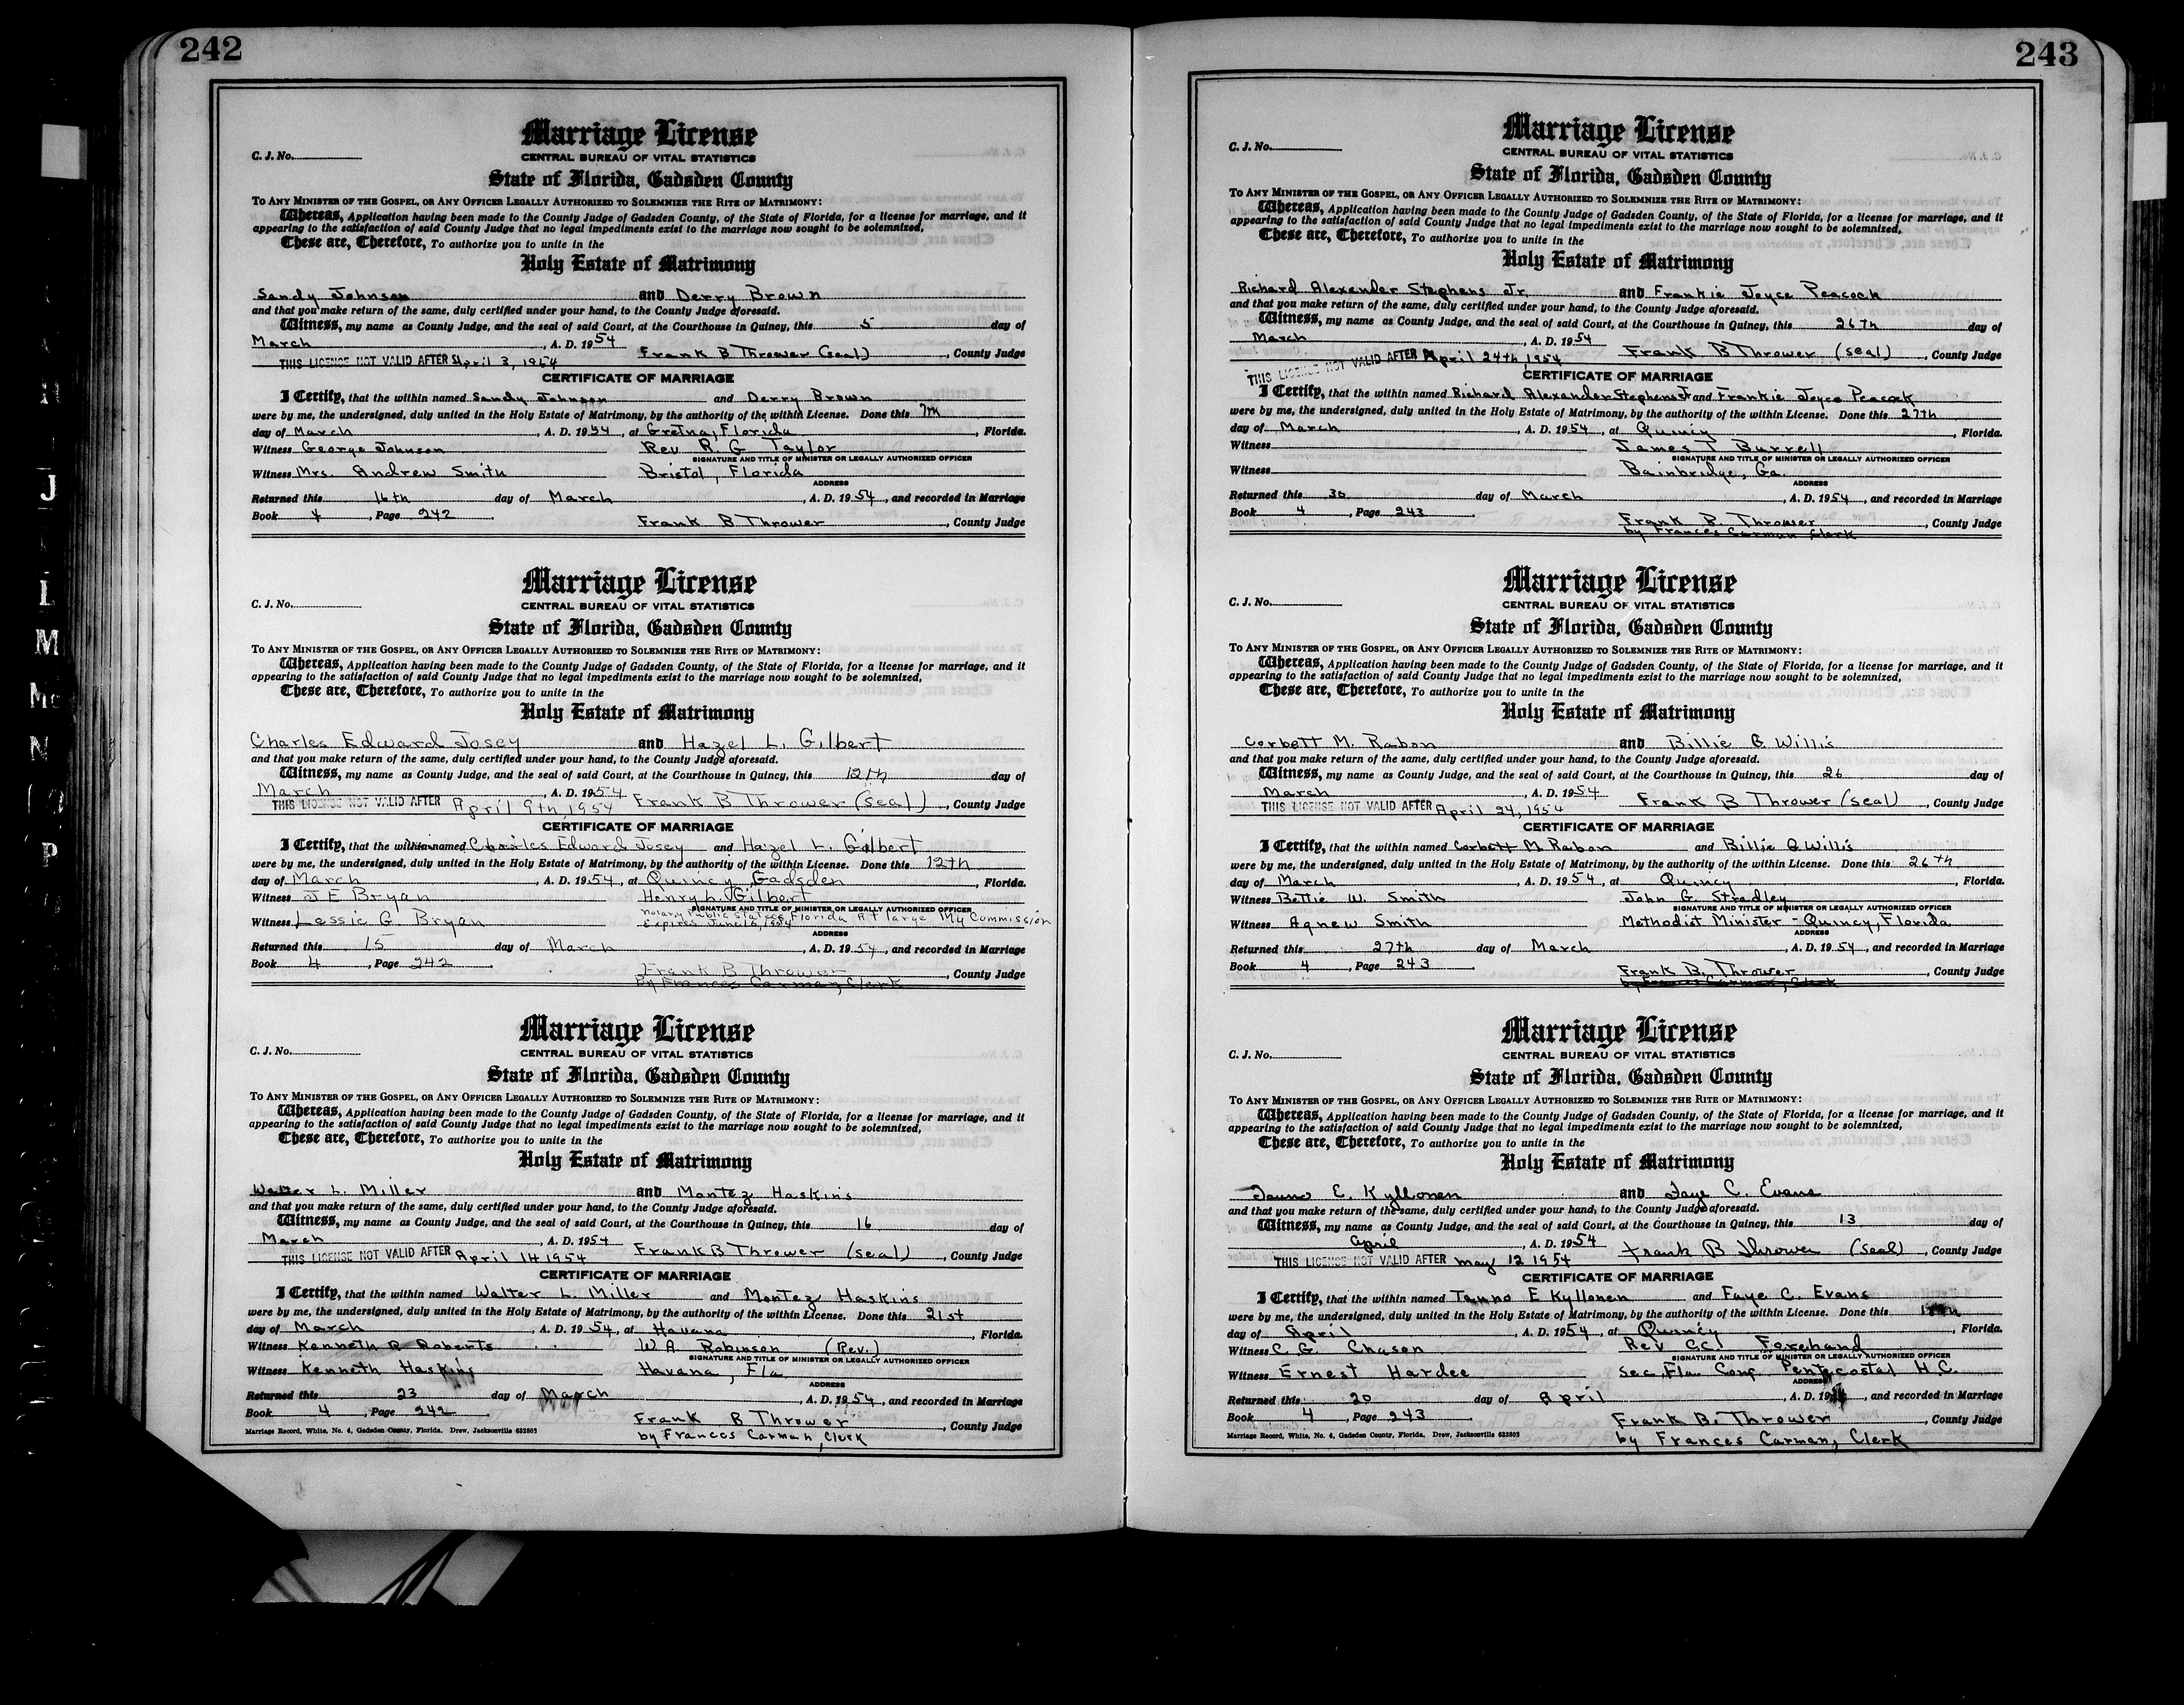 242
Marriage License
C. J. No.
CENTRAL BUREAU OF VITAL STATISTICS
State of Florida, Gadsden County
TO ANY MINISTER OF THE GOSPEL, OR ANY OFFICER LEGALLY AUTHORIZED TO SOLEMNIZE THE RITE OF MATRIMONY:
Whereas, Application having been made to the County Judge of Gadsden County, of the State of Florida, for a license for marriage, and it
appearing to the satisfaction of said County Judge that no legal impediments exist to the marriage now sought to be solemnized,
These are, Therefore, To authorize you to unite in the
Holy Estate of Matrimony
Sandy Johnson and Derry Brown
and that you make return of the same, duly certified under your hand, to the County Judge aforesaid.
Witness, my name as County Judge, and the seal of said Court, at the Courthouse in Quincy, this 5 day of
March, A. D. 1954
THIS LICENSE NOT VALID AFTER April 3, 1954 Frank B Thrower (seal), County Judge
CERTIFICATE OF MARRIAGE
I Certify, that the within named Sandy Johnson and Derry Brown
were by me, the undersigned, duly united in the Holy Estate of Matrimony, by the authority of the within License. Done this 7th
day of March, A. D. 1954, at Gretna, Florida, Florida.
Witness George Johnson Rev R. G Taylor
SIGNATURE AND TITLE OF MINISTER OR LEGALLY AUTHORIZED OFFICER
Witness Mrs. Andrew Smith Bristol, Florida
ADDRESS
Returned this 16th day of March, A. D. 1954, and recorded in Marriage
Book 4, Page 242.
Frank B Thrower, County Judge
Marriage License
C. J. No.
CENTRAL BUREAU OF VITAL STATISTICS
State of Florida, Gadsden County
TO ANY MINISTER OF THE GOSPEL, OR ANY OFFICER LEGALLY AUTHORIZED TO SOLEMNIZE THE RITE OF MATRIMONY:
Whereas, Application having been made to the County Judge of Gadsden County, of the State of Florida, for a license for marriage, and it
appearing to the satisfaction of said County Judge that no legal impediments exist to the marriage now sought to be solemnized,
These are, Therefore, To authorize you to unite in the
Holy Estate of Matrimony
Charles Edward Josey and Hazel L. Gilbert
and that you make return of the same, duly certified under your hand, to the County Judge aforesaid.
Witness, my name as County Judge, and the seal of said Court, at the Courthouse in Quincy, this 12th day of
March, A. D. 1954
THIS LICENSE NOT VALID AFTER April 9th, 1954 Frank B Thrower (seal), County Judge
CERTIFICATE OF MARRIAGE
I Certify, that the within named Charles Edward Josey and Hazel L. Gilbert
were by me, the undersigned, duly united in the Holy Estate of Matrimony, by the authority of the within License. Done this 12th
day of March, A. D. 1954, at Quincy, Gadsden, Florida.
Witness J E Bryan Henry L. Gilbert
SIGNATURE AND TITLE OF MINISTER OR LEGALLY AUTHORIZED OFFICER
Notary Public State of Florida At large My Commission
Witness Lessie G Bryan expires June 16, 1954
ADDRESS
Returned this 15 day of March, A. D. 1954, and recorded in Marriage
Book 4, Page 242.
Frank B Thrower, County Judge
by Frances Carman, Clerk
Marriage License
C. J. No.
CENTRAL BUREAU OF VITAL STATISTICS
State of Florida, Gadsden County
TO ANY MINISTER OF THE GOSPEL, OR ANY OFFICER LEGALLY AUTHORIZED TO SOLEMNIZE THE RITE OF MATRIMONY:
Whereas, Application having been made to the County Judge of Gadsden County, of the State of Florida, for a license for marriage, and it
appearing to the satisfaction of said County Judge that no legal impediments exist to the marriage now sought to be solemnized,
These are, Therefore, To authorize you to unite in the
Holy Estate of Matrimony
Walter L. Miller and Montez Haskins
and that you make return of the same, duly certified under your hand, to the County Judge aforesaid.
Witness, my name as County Judge, and the seal of said Court, at the Courthouse in Quincy, this 16 day of
March, A. D. 1954
THIS LICENSE NOT VALID AFTER April 14 1954 Frank B Thrower (seal), County Judge
CERTIFICATE OF MARRIAGE
I Certify, that the within named Walter L. Miller and Montez Haskins
were by me, the undersigned, duly united in the Holy Estate of Matrimony, by the authority of the within License. Done this 21st
day of March, A. D. 1954, at Havana, Florida.
Witness Kenneth R Roberts W A Robinson (Rev.)
SIGNATURE AND TITLE OF MINISTER OR LEGALLY AUTHORIZED OFFICER
Witness Kenneth Haskins Havana, Fla
ADDRESS
Returned this 23 day of March, A. D. 1954, and recorded in Marriage
Book 4, Page 242.
Frank B Thrower, County Judge
by Frances Carman, Clerk
Marriage Record, White, No. 4, Gadsden County, Florida. Drew, Jacksonville 682803
243
Marriage License
C. J. No.
CENTRAL BUREAU OF VITAL STATISTICS
State of Florida, Gadsden County
TO ANY MINISTER OF THE GOSPEL, OR ANY OFFICER LEGALLY AUTHORIZED TO SOLEMNIZE THE RITE OF MATRIMONY:
Whereas, Application having been made to the County Judge of Gadsden County, of the State of Florida, for a license for marriage, and it
appearing to the satisfaction of said County Judge that no legal impediments exist to the marriage now sought to be solemnized,
These are, Therefore, To authorize you to unite in the
Holy Estate of Matrimony
Richard Alexender Stephens Jr. and Frankie Joyce Peacock
and that you make return of the same, duly certified under your hand, to the County Judge aforesaid.
Witness, my name as County Judge, and the seal of said Court, at the Courthouse in Quincy, this 26th day of
March, A. D. 1954
THIS LICENSE NOT VALID AFTER April 24th, 1954 Frank B Thrower (seal), County Judge
CERTIFICATE OF MARRIAGE
I Certify, that the within named Richard Alexander Stephens Jr and Frankie Joyce Peacock
were by me, the undersigned, duly united in the Holy Estate of Matrimony, by the authority of the within License. Done this 27th
day of March, A. D. 1954, at Quincy, Florida.
Witness James T Burrell
SIGNATURE AND TITLE OF MINISTER OR LEGALLY AUTHORIZED OFFICER
Witness Bainbridge, Ga.
ADDRESS
Returned this 30 day of March, A. D. 1954, and recorded in Marriage
Book 4, Page 243.
Frank B. Thrower, County Judge
by Frances Carman Clerk
Marriage License
C. J. No.
CENTRAL BUREAU OF VITAL STATISTICS
State of Florida, Gadsden County
TO ANY MINISTER OF THE GOSPEL, OR ANY OFFICER LEGALLY AUTHORIZED TO SOLEMNIZE THE RITE OF MATRIMONY:
Whereas, Application having been made to the County Judge of Gadsden County, of the State of Florida, for a license for marriage, and it
appearing to the satisfaction of said County Judge that no legal impediments exist to the marriage now sought to be solemnized,
These are, Therefore, To authorize you to unite in the
Holy Estate of Matrimony
Corbett M. Rabon and Billie G Willis
and that you make return of the same, duly certified under your hand, to the County Judge aforesaid.
Witness, my name as County Judge, and the seal of said Court, at the Courthouse in Quincy, this 26 day of
March, A. D. 1954
THIS LICENSE NOT VALID AFTER April 24, 1954 Frank B Thrower (seal), County Judge
CERTIFICATE OF MARRIAGE
I Certify, that the within named Corbett M. Rabon and Billie G Willis
were by me, the undersigned, duly united in the Holy Estate of Matrimony, by the authority of the within License. Done this 26th
day of March, A. D. 1954, at Quincy, Florida.
Witness Bettie W. Smith John G. Stradley
SIGNATURE AND TITLE OF MINISTER OR LEGALLY AUTHORIZED OFFICER
Witness Agnew Smith Methodist Minister - Quincy, Florida
ADDRESS
Returned this 27th day of March, A. D. 1954, and recorded in Marriage
Book 4, Page 243.
Frank B. Thrower, County Judge
by Frances Carman, Clerk
Marriage License
C. J. No.
CENTRAL BUREAU OF VITAL STATISTICS
State of Florida, Gadsden County
TO ANY MINISTER OF THE GOSPEL, OR ANY OFFICER LEGALLY AUTHORIZED TO SOLEMNIZE THE RITE OF MATRIMONY:
Whereas, Application having been made to the County Judge of Gadsden County, of the State of Florida, for a license for marriage, and it
appearing to the satisfaction of said County Judge that no legal impediments exist to the marriage now sought to be solemnized,
These are, Therefore, To authorize you to unite in the
Holy Estate of Matrimony
Tauno E. Kyllonen and Faye C. Evans
and that you make return of the same, duly certified under your hand, to the County Judge aforesaid.
Witness, my name as County Judge, and the seal of said Court, at the Courthouse in Quincy, this 13 day of
April, A. D. 1954
THIS LICENSE NOT VALID AFTER May 12 1954 Frank B Thrower (seal), County Judge
CERTIFICATE OF MARRIAGE
I Certify, that the within named Tauno E Kyllonen and Faye C. Evans
were by me, the undersigned, duly united in the Holy Estate of Matrimony, by the authority of the within License. Done this
day of April, A. D. 1954, at Quincy, Florida.
Witness C. G. Chason Rev GC Forehand
SIGNATURE AND TITLE OF MINISTER OR LEGALLY AUTHORIZED OFFICER
Witness Ernest Hardee Sec, Fla. Conf. Pentecostal H.C.
ADDRESS
Returned this 20 day of April, A. D. 19, and recorded in Marriage
Book 4, Page 243.
Frank B. Thrower, County Judge
by Frances Carman, Clerk
Marriage Record, White, No. 4, Gadsden County, Florida. Drew, Jacksonville 682803